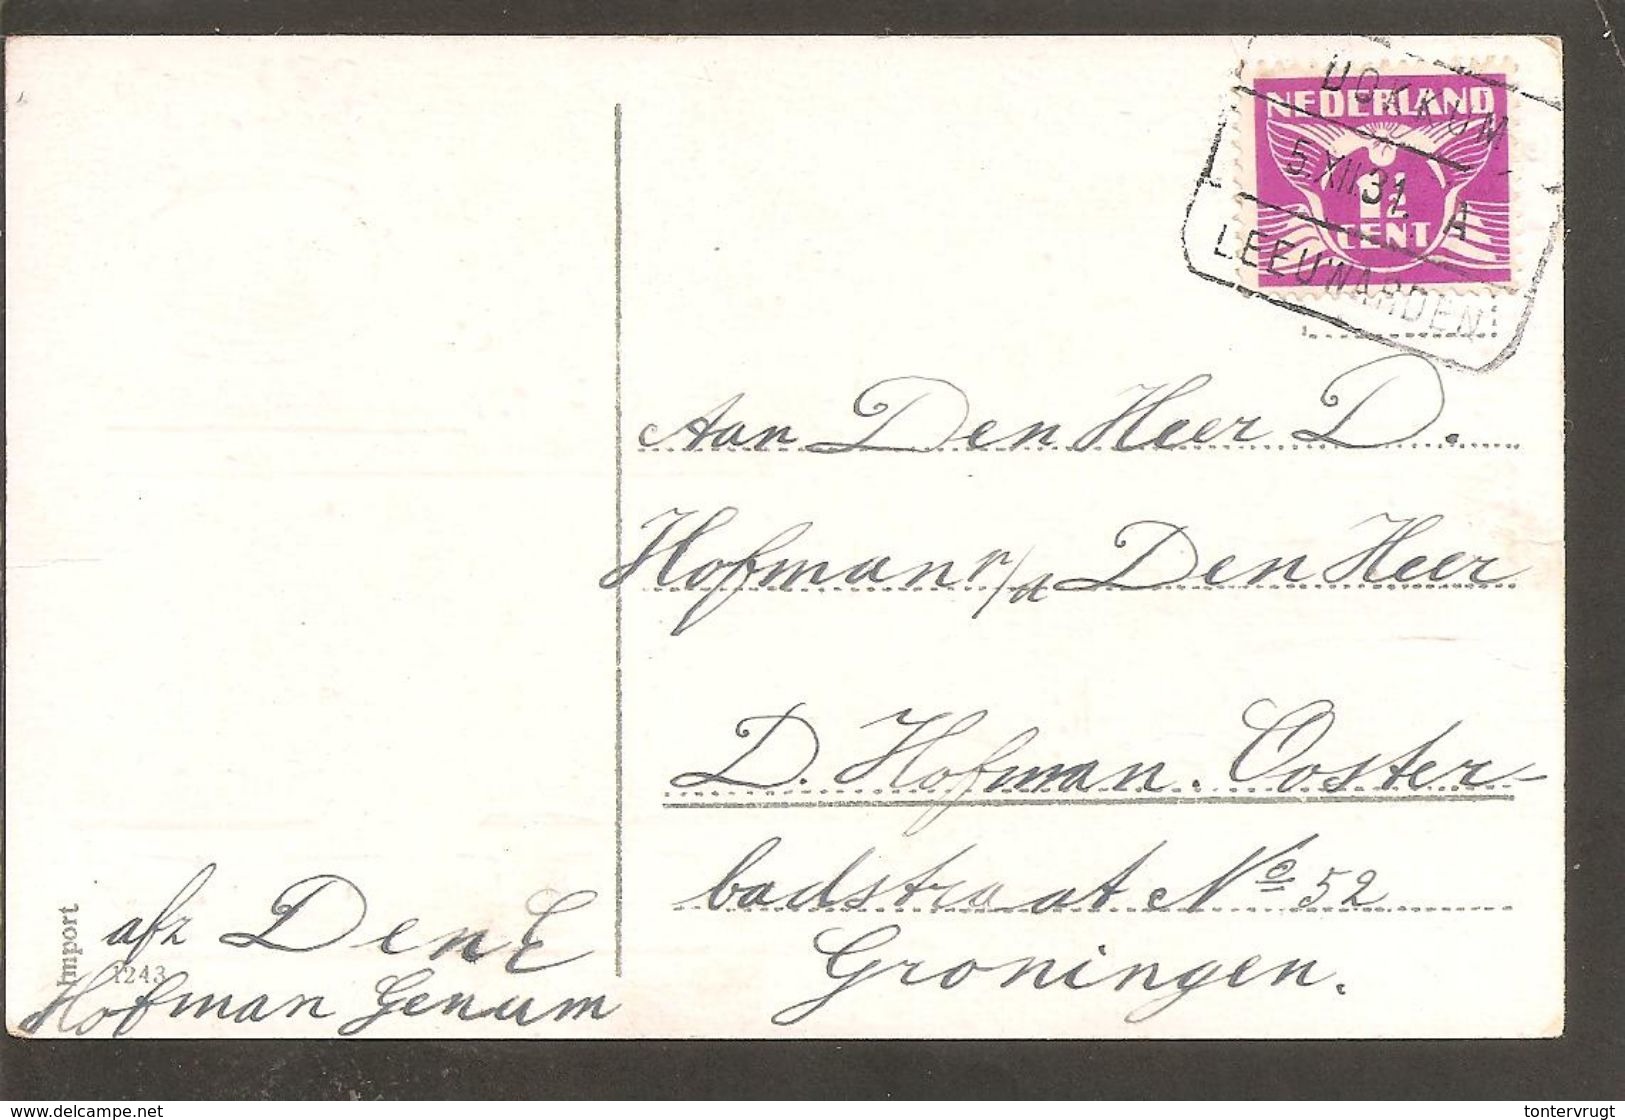 NEDERLAND
1½
CENT
DOKKUM-
5.XII.31. A
LEEUWARDEN
Aan Den Heer D.
Hofman p/a Den Heer
D. Hofman. Ooster-
badstraat No 52
Groningen.
afz Den E
Hofman Genum
Import
1243
delcampe.net
tontervrugt